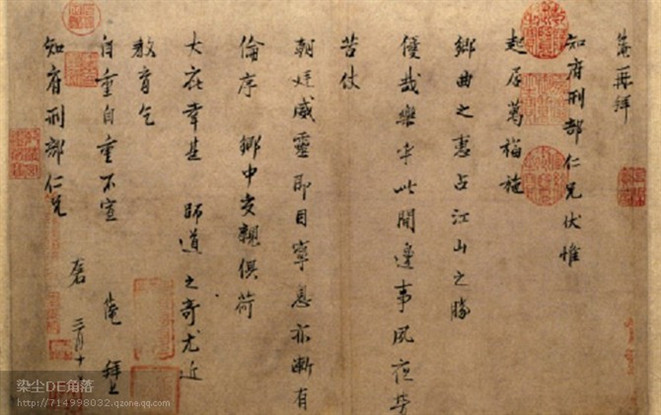 淹再拜
知府刑部仁兄伏惟
起居萬福施
鄉曲之惠占江山之勝
優哉樂乎此間邊事夙夜勞
苦仗
朝廷威靈即目寧息亦漸有
倫序 鄉中交親俱荷
大庇幸甚 師道之奇尤近
教育乞
自重自重不宣 淹 拜上
知府刑部仁兄 三月十
染尘DE角落
http://714998032.qzone.qq.com/